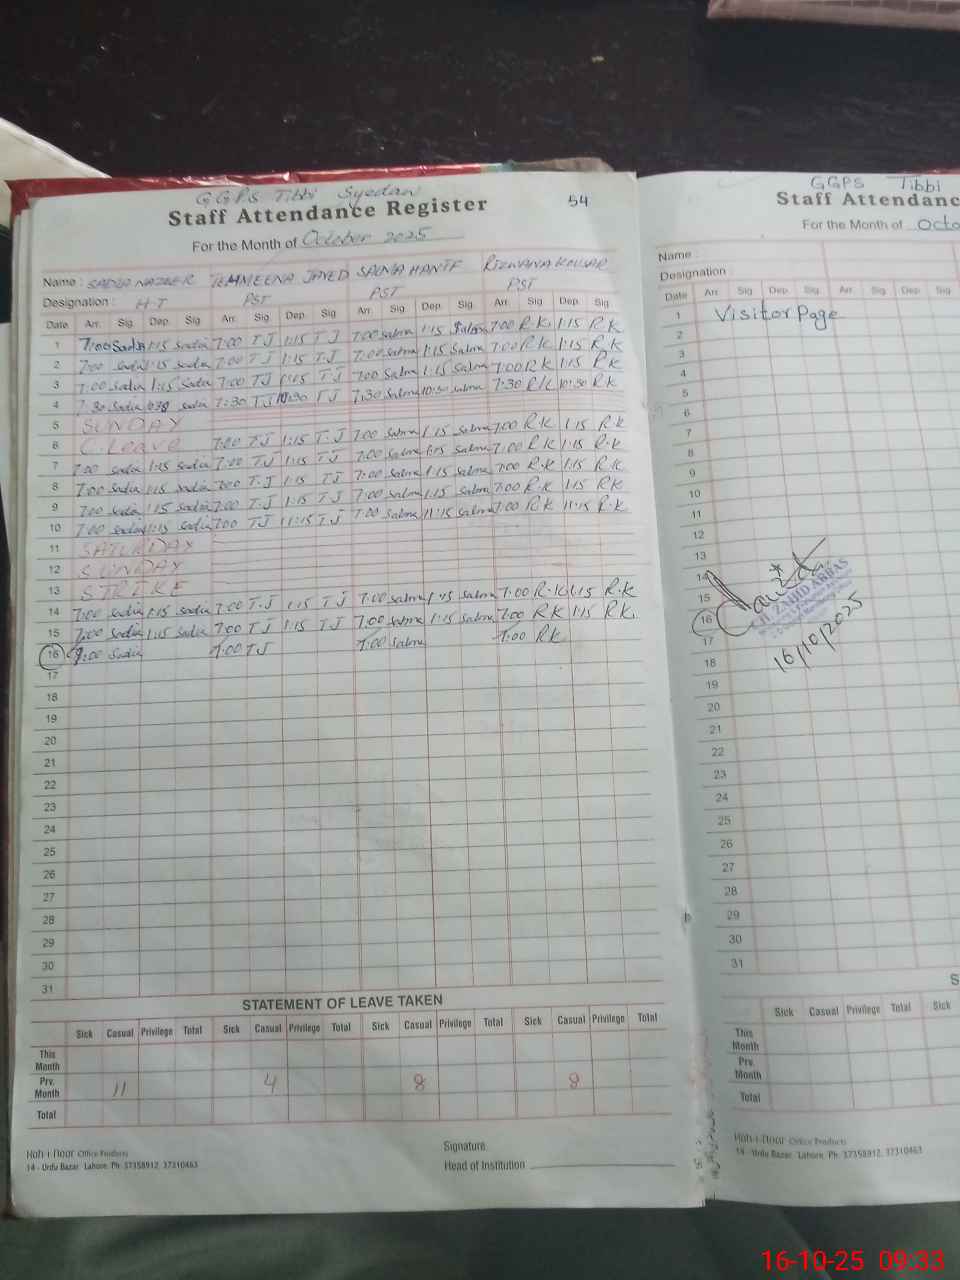 GGPS Tibbi Syedan
Staff Attendance Register 54
For the Month of October 2025
Name : SADIA NAZEER TEHMEENA JAVED SALMA HANIF RIZWANA KOUSAR
Designation : H-T PST PST PST
Date Arr. Sig. Dep. Sig. Arr. Sig. Dep. Sig. Arr. Sig. Dep. Sig. Arr. Sig. Dep. Sig.
1 7:00 Sadia 1:15 Sadia 7:00 TJ 1:15 TJ 7:00 Salma 1:15 Salma 7:00 R.K 1:15 R.K
2 7:00 Sadia 1:15 Sadia 7:00 TJ 1:15 TJ 7:00 Salma 1:15 Salma 7:00 R.K 1:15 R.K
3 7:00 Sadia 1:15 Sadia 7:00 TJ 1:15 TJ 7:00 Salma 1:15 Salma 7:00 R.K 1:15 R.K
4 7:30 Sadia Sadia 7:30 TJ 10:30 TJ 7:30 Salma 10:30 Salma 7:30 R.K 10:30 R.K
5 SUNDAY
6 C.Leave 7:00 TJ 1:15 T.J 7:00 Salma 1:15 Salma 7:00 R.K 1:15 R.K
7 7:00 Sadia 1:15 Sadia 7:00 TJ 1:15 TJ 7:00 Salma 1:15 Salma 7:00 R.K 1:15 R.K
8 7:00 Sadia 1:15 Sadia 7:00 T.J 1:15 TJ 7:00 Salma 1:15 Salma 7:00 R.K 1:15 R.K
9 7:00 Sadia 1:15 Sadia 7:00 T.J 1:15 TJ 7:00 Salma 1:15 Salma 7:00 R.K 1:15 R.K
10 7:00 Sadia 11:15 Sadia 7:00 TJ 11:15 TJ 7:00 Salma 11:15 Salma 7:00 R.K 11:15 R.K
11 SATURDAY
12 SUNDAY
13 STRIKE
14 7:00 Sadia 1:15 Sadia 7:00 T.J 1:15 TJ 7:00 Salma 1:15 Salma 7:00 R.K 1:15 R.K
15 7:00 Sadia 1:15 Sadia 7:00 TJ 1:15 TJ 7:00 Salma 1:15 Salma 7:00 RK 1:15 R.K
16 7:00 Sadia 7:00 TJ 7:00 Salma 7:00 RK
17
18
19
20
21
22
23
24
25
26
27
28
29
30
31
STATEMENT OF LEAVE TAKEN
Sick Casual Privilege Total Sick Casual Privilege Total Sick Casual Privilege Total Sick Casual Privilege Total
This Month
Prv. Month 11 4 8 8
Total
Signature
Head of Institution
Koh-i-Noor Office Products
14 - Urdu Bazar Lahore. Ph: 37358912, 37310463
GGPS Tibbi
Staff Attendanc
For the Month of Octo
Name :
Designation :
Date Arr. Sig. Dep. Sig. Arr. Sig. Dep. Sig.
1 Visitor Page
2
3
4
5
6
7
8
9
10
11
12
13
14
15
16
ZAHID ABBAS
16/10/2025
17
18
19
20
21
22
23
24
25
26
27
28
29
30
31
S
Sick Casual Privilege Total Sick
This Month
Prv. Month
Total
Koh-i-Noor Office Products
14 - Urdu Bazar Lahore. Ph: 37358912, 37310463
16-10-25 09:33